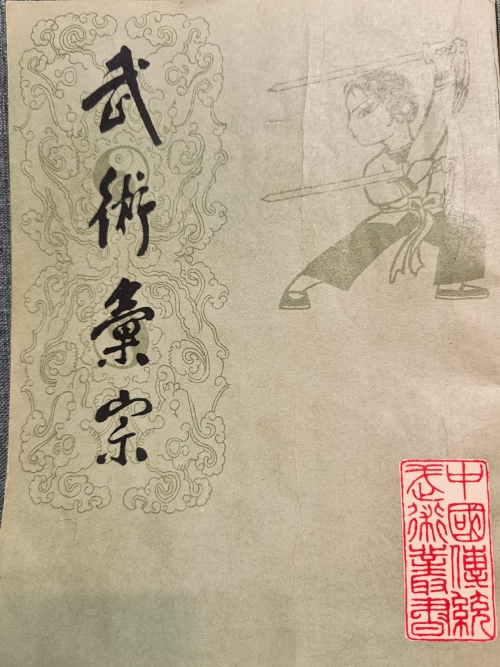 武術彙宗
中國傳統
武術叢書